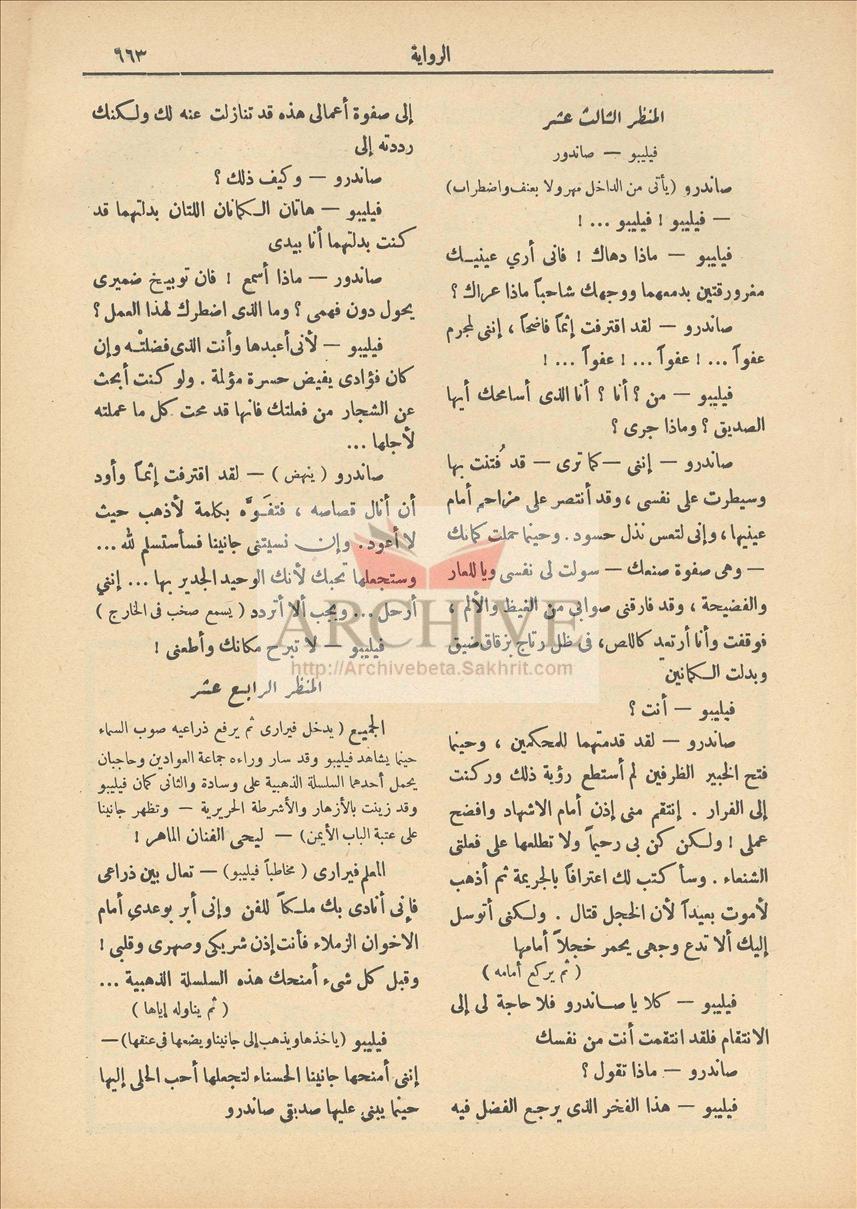 الرواية
٦٦٣
المنظر الثالث عشر
فيليبو — صاندور
صاندرو (يأتى من الداخل مهرولا بعنف واضطراب)
— فيليبو ! فيليبو ... !
فيليبو — ماذا دهاك ! فانى أري عينيك
مغرورقتين بدمعهما ووجهك شاحباً ماذا عراك ؟
صاندرو — لقد اقترفت إثماً فاضحاً ، إننى لمجرم
عفواً ... ! عفواً ... ! عفواً ... !
فيليبو — من ؟ أنا ؟ أنا الذى أسامحك أيها
الصديق ؟ وماذا جرى ؟
صاندرو — إننى — كما ترى — قد فُتنت بها
وسيطرت على نفسى ، وقد أنتصر على مزاحم أمام
عينيها ، وإنى لتعس نذل حسود . وحينما حملت كمانك
— وهى صفوة صنعك — سولت لى نفسى ويا للعار
والفضيحة ، وقد فارقنى صوابى من الغيظ والألم ،
فوقفت وأنا أرتعد كاللص، فى ظل رتاج بزقاق ضيق
وبدلت الكمانين
فيليبو — أنت ؟
صاندرو — لقد قدمتهما للمحكمين ، وحينما
فتح الخبير الظرفين لم أستطع رؤية ذلك وركنت
إلى الفرار . إنتقم منى إذن أمام الاشهاد وافضح
عملى ! ولكن كن بى رحيماً ولا تطلعها على فعلتى
الشنعاء . وسأكتب لك اعترافاً بالجريمة ثم أذهب
لأموت بعيداً لأن الخجل قتال . ولكنى أتوسل
إليك ألا تدع وجهى يحمر خجلاً أمامها
( ثم يركع أمامه )
فيليبو — كلا يا صاندرو فلا حاجة لى إلى
الانتقام فلقد انتقمت أنت من نفسك
صاندرو — ماذا تقول ؟
فيليبو — هذا الفخر الذى يرجع الفضل فيه
إلى صفوة أعمالى هذه قد تنازلت عنه لك ولكنك
رددته إلى
صاندرو — وكيف ذلك ؟
فيليبو — هاتان الكمانان اللتان بدلتهما قد
كنت بدلتهما أنا بيدى
صاندور — ماذا أسمع ! فان توبيخ ضميرى
يحول دون فهمى ؟ وما الذى اضطرك لهذا العمل ؟
فيليبو — لأنى أعبدها وأنت الذى فضلتْه وإن
كان فؤادى يفيض حسرة مؤلمة . ولو كنت أبحث
عن الشجار من فعلتك فانها قد محت كل ما عملته
لأجلها ...
صاندرو ( ينهض ) — لقد اقترفت إثماً وأود
أن أنال قصاصه ، فتفَوَّه بكلمة لأذهب حيث
لا أعود. وإن نسيتنى جانينا فسأستسلم لله ...
وستجعلها تحبك لأنك الوحيد الجدير بها ... إنني
أرحل ... ويجب ألا أتردد ( يسمع صخب فى الخارج )
فيليبو — لا تبرح مكانك وأطعنى !
المنظر الرابع عشر
الجميع ( يدخل فيرارى ثم يرفع ذراعيه صوب السماء
حينما يشاهد فيليبو وقد سار وراءه جماعة العوادين وحاجبان
يحمل أحدهما السلسلة الذهبية على وسادة والثانى كمان فيليبو
وقد زينت بالأزهار والأشرطة الحريرية — وتظهر جانينا
على عتبة الباب الأيمن) — ليحى الفنان الماهر !
المعلم فيرارى ( مخاطباً فيليبو) — تعال بين ذراعى
فإنى أنادى بك ملكاً للفن وإنى أبر بوعدي أمام
الاخوان الزملاء فأنت إذن شريكى وصهرى وقلبى !
وقبل كل شىء أمنحك هذه السلسلة الذهبية ...
( ثم يناوله إياها )
فيليبو (ياخذها ويذهب إلى جانينا ويضعها فى عنقها) —
إننى أمنحها جانينا الحسناء لتجعلها أحب الحلى إليها
حينما يبنى عليها صديقى صاندرو
ARCHIVE
http://Archivebeta.Sakhrit.com